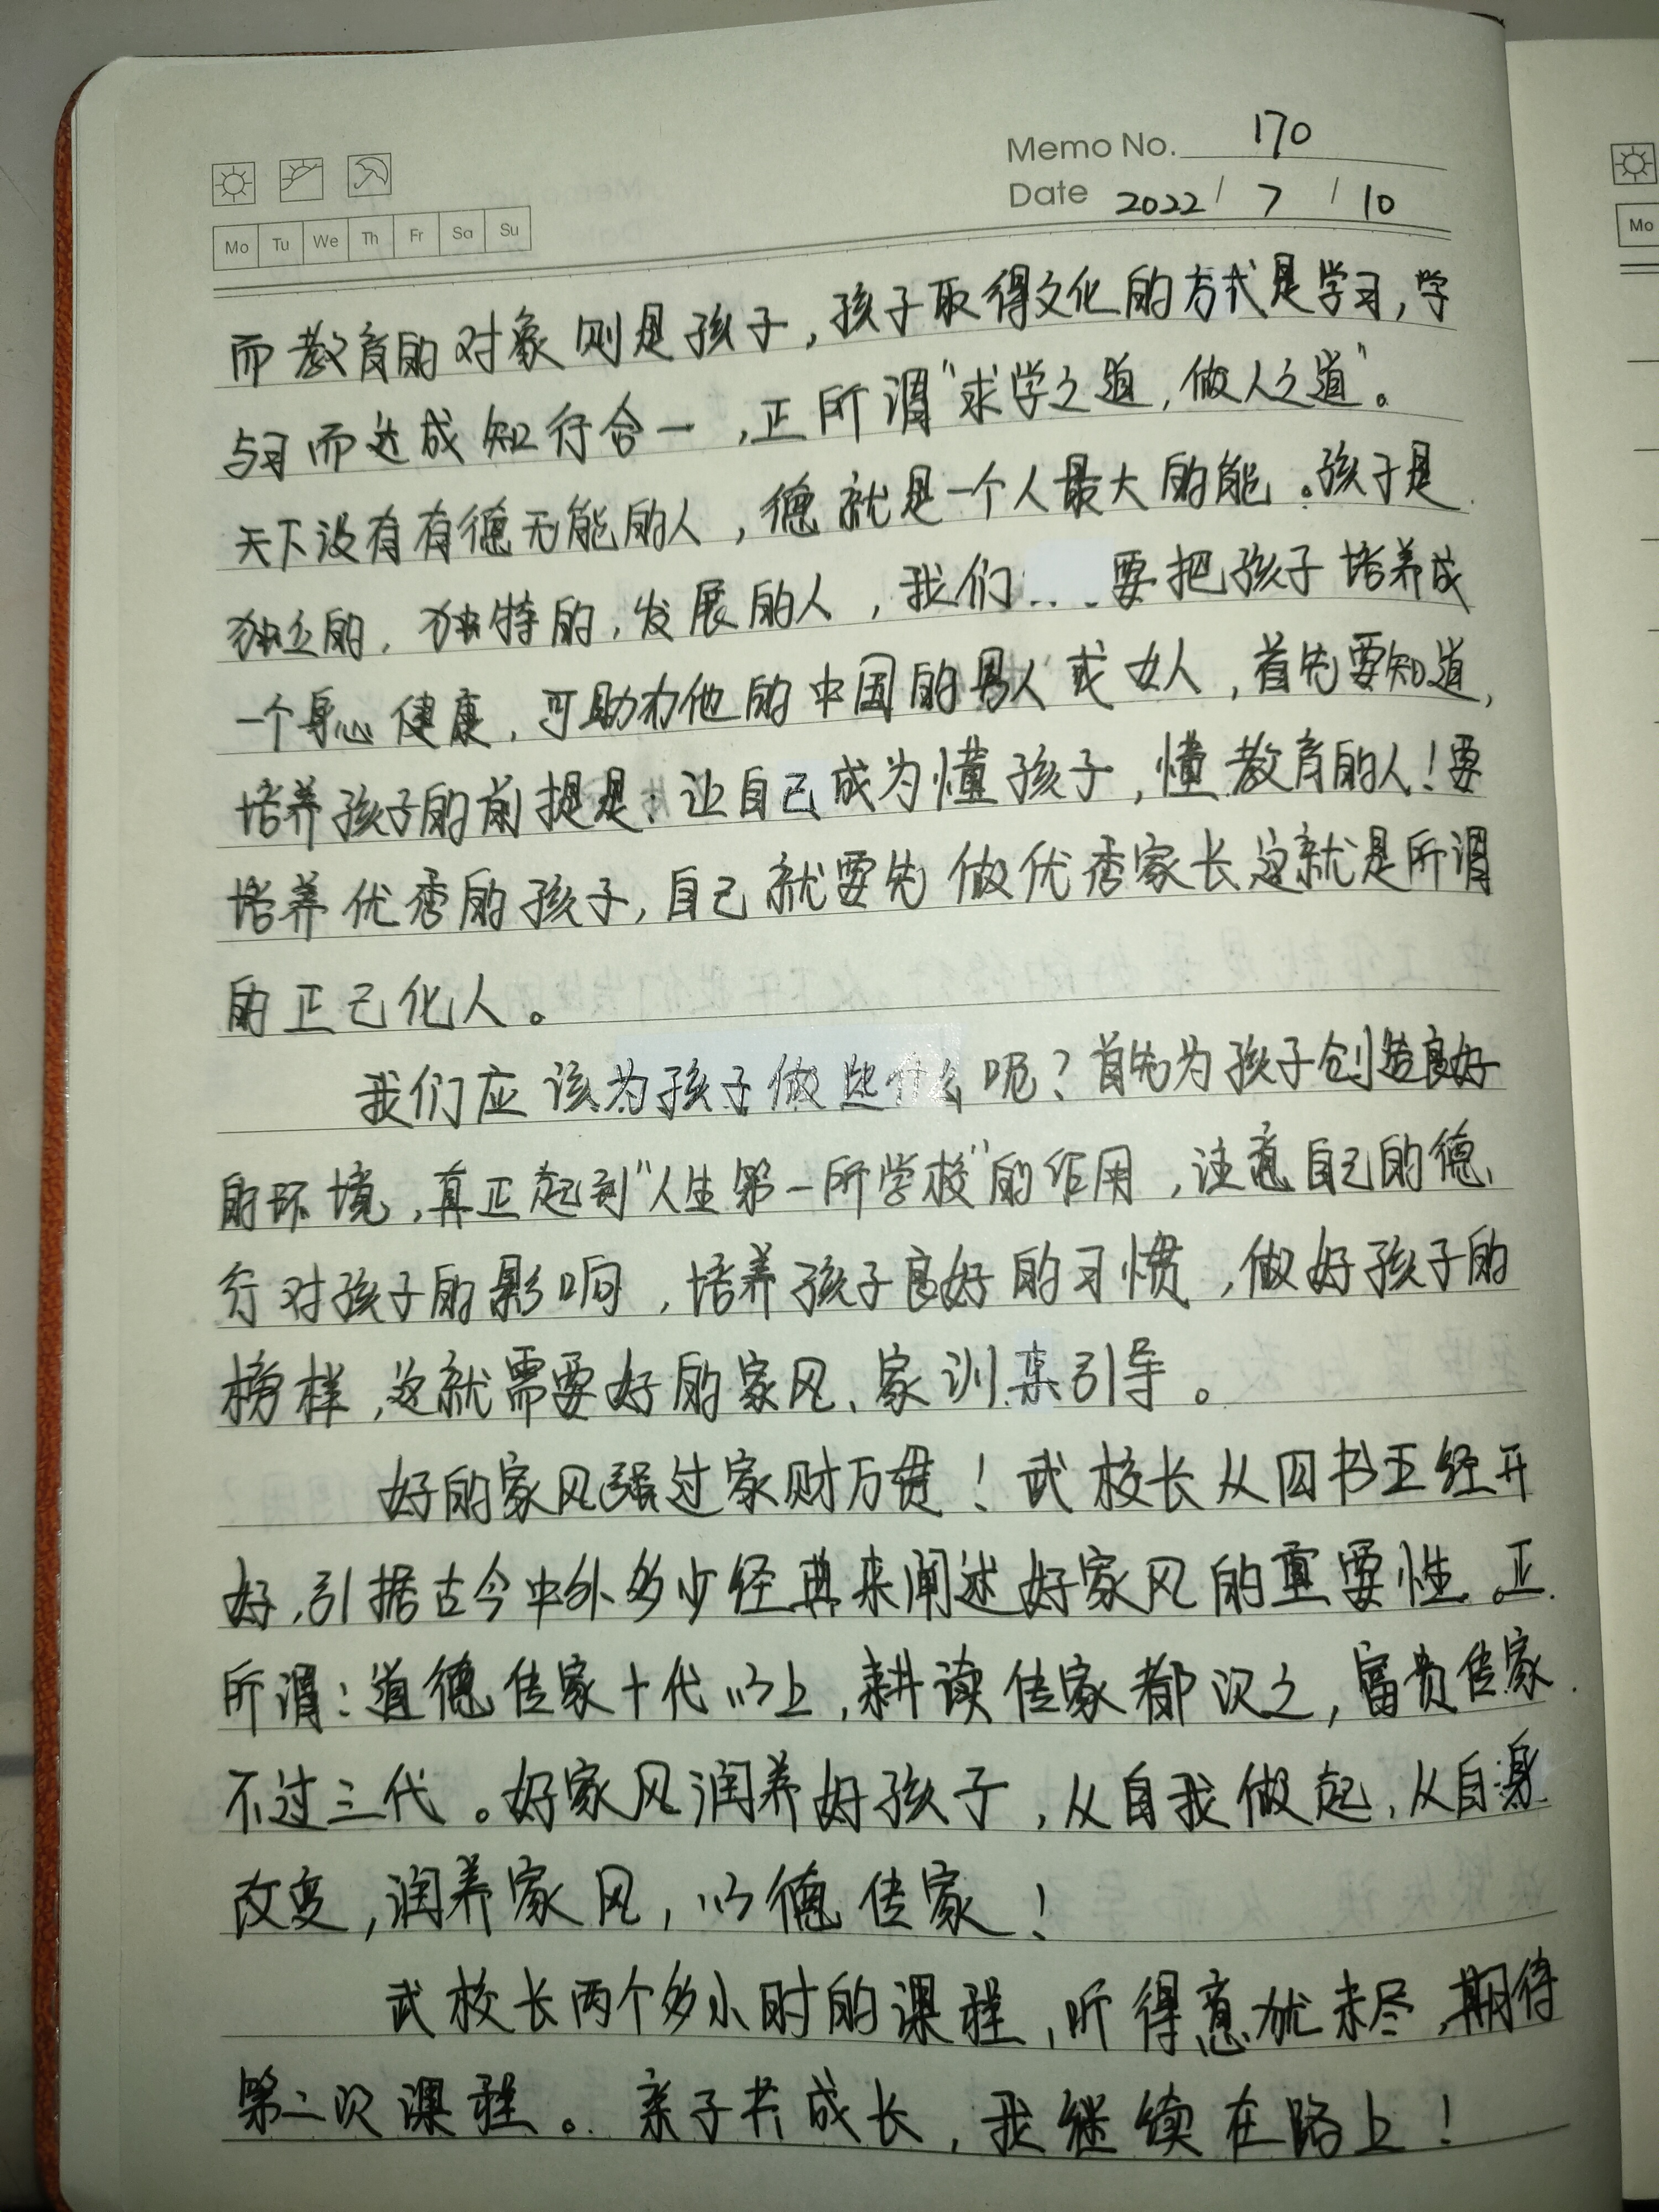 Memo No. 170
Date 2022 / 7 / 10
Mo Tu We Th Fr Sa Su
Mo
而教育的对象则是孩子,孩子取得文化的方式是学习,学
与习而达成知行合一,正所谓"求学之道,做人之道"。
天下没有有德无能的人,德就是一个人最大的能。孩子是
独立的,独特的,发展的人,我们要把孩子培养成
一个身心健康,可助力他的中国的男人或女人,首先要知道,
培养孩子的前提是:让自己成为懂孩子,懂教育的人!要
培养优秀的孩子,自己就要先做优秀家长这就是所谓
的正己化人。
我们应该为孩子做些什么呢?首先为孩子创造良好
的环境,真正起到"人生第一所学校"的作用,注意自己的德、
行对孩子的影响,培养孩子良好的习惯,做好孩子的
榜样,这就需要好的家风、家训来引导。
好的家风强过家财万贯!武校长从四书五经开
好,引据古今中外多少经典来阐述好家风的重要性。正
所谓:道德传家十代以上,耕读传家都次之,富贵传家
不过三代。好家风润养好孩子,从自我做起,从自身
改变,润养家风,以德传家!
武校长两个多小时的课程,听得意犹未尽,期待
第二次课程。亲子共成长,我继续在路上!